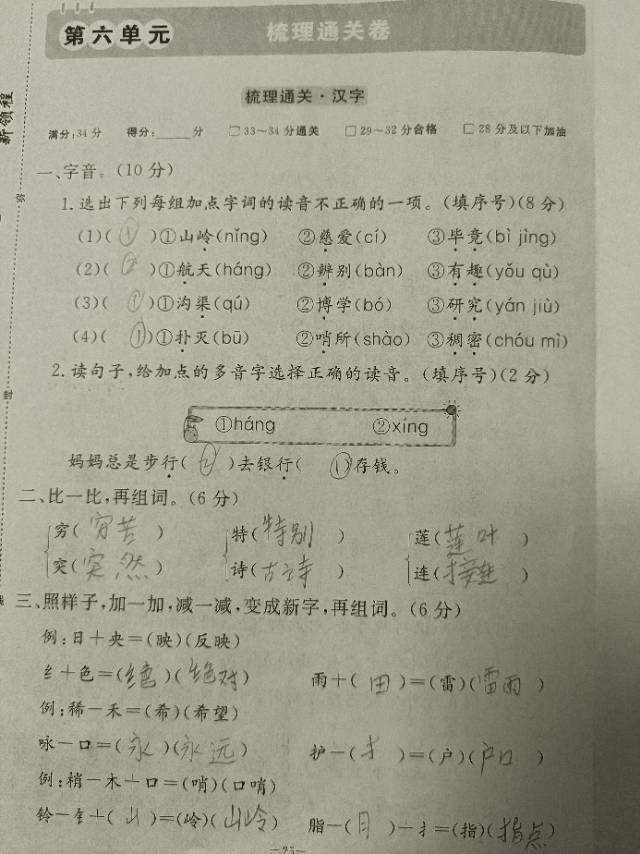 第六单元 梳理通关卷
新领程
弥
封
线
梳理通关·汉字
满分:34分 得分:____分 □33~34分通关 □29~32分合格 □28分及以下加油
一、字音。(10分)
1.选出下列每组加点字词的读音不正确的一项。(填序号)(8分)
(1)( ① )①山岭(nǐng) ②慈爱(cí) ③毕竟(bì jìng)
(2)( ② )①航天(háng) ②辨别(bàn) ③有趣(yǒu qù)
(3)( ① )①沟渠(qú) ②博学(bó) ③研究(yán jiù)
(4)( ① )①扑灭(bū) ②哨所(shào) ③稠密(chóu mì)
2.读句子,给加点的多音字选择正确的读音。(填序号)(2分)
①háng ②xíng
妈妈总是步行( ② )去银行( ① )存钱。
二、比一比,再组词。(6分)
穷(穷苦) 特(特别) 莲(莲叶)
突(突然) 诗(古诗) 连(接连)
三、照样子,加一加,减一减,变成新字,再组词。(6分)
例:日+央=(映)(反映)
纟+色=(绝)(绝对) 雨+(田)=(雷)(雷雨)
例:稀-禾=(希)(希望)
咏-口=(永)(永远) 护-(扌)=(户)(户口)
例:梢-木+口=(哨)(口哨)
铃-钅+(山)=(岭)(山岭) 脂-(月)-扌=(指)(指点)
-25-